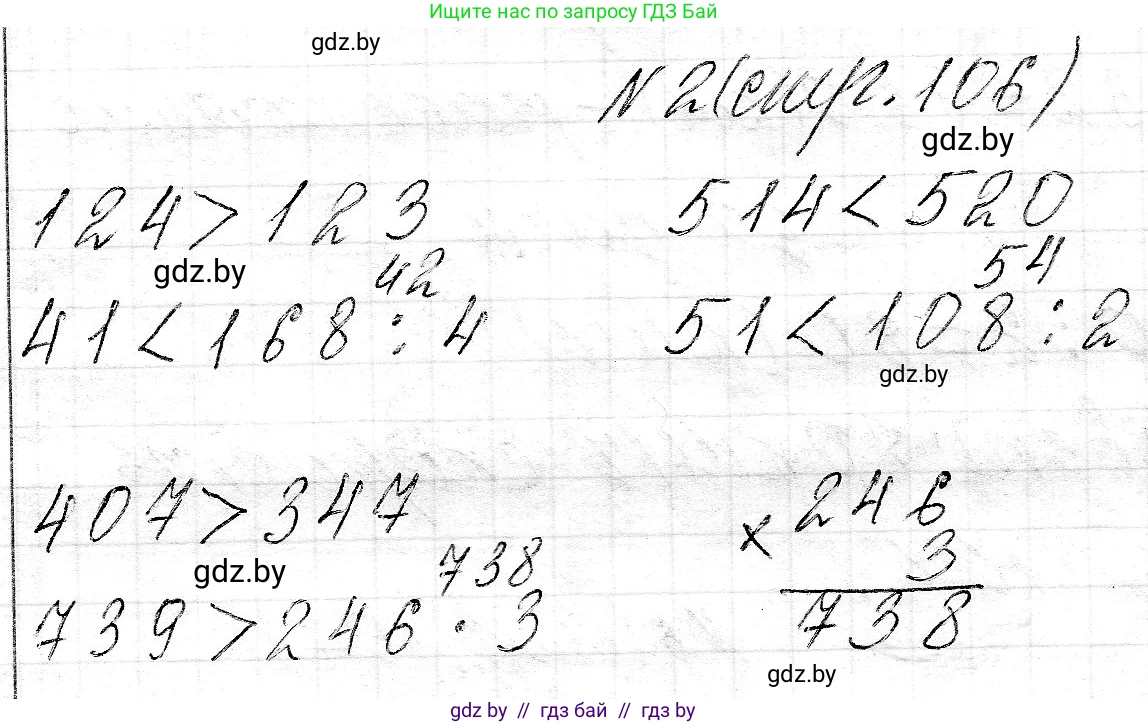 Ищите нас по запросу ГДЗ Бай
gdz.by
N 2 (стр. 106)
gdz.by
124 > 123 514 < 520
gdz.by 42 54
41 < 168 : 4 51 < 108 : 2
gdz.by
407 > 347 246
gdz.by 738 × 3
739 > 246 · 3 738
gdz.by
gdz by // гдз бай // гдз by